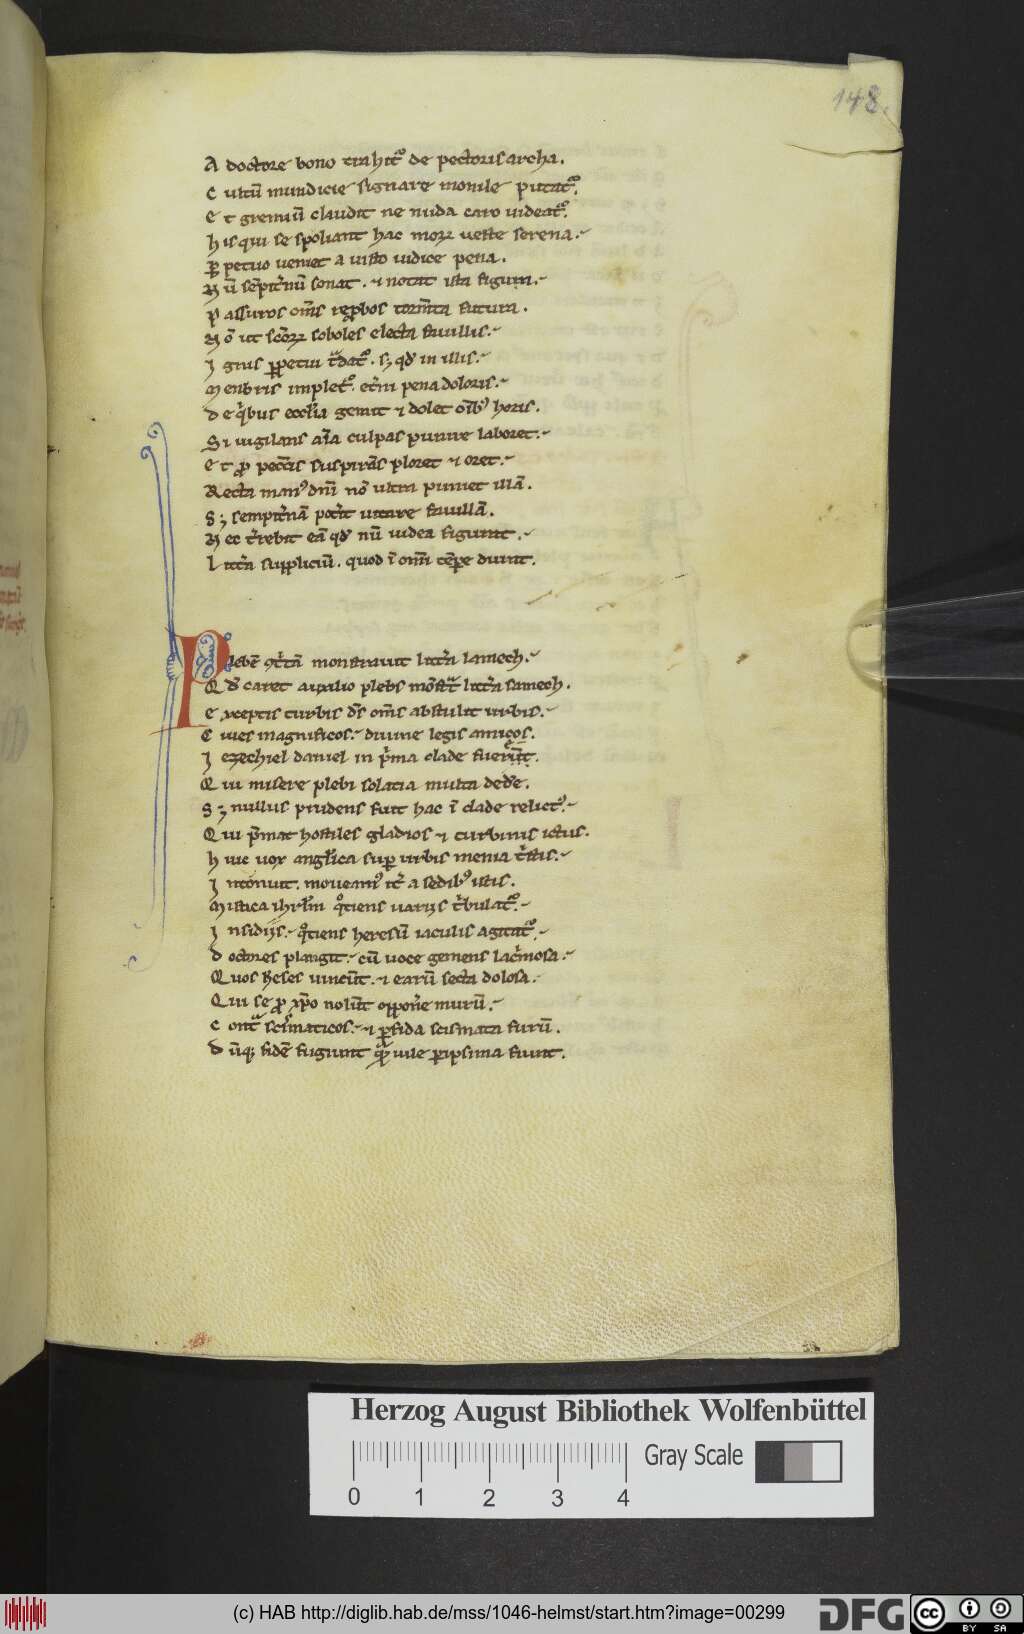 148.
A doctore bono trahitᷣ de pectoris archa.
C ultū mundicie signare monile putatᷣ.
E t gremiū claudit ne nuda caro uideatᷣ.
h is qui se spoliant hac moꝝ ueste serena.
ꝑ petuo ueniet a iusto iudice pena.
N ū sēpit̾nū sonat. ⁊ notat ista figura.
p assuros om̄s reꝓbos torm̄ta futura.
N ō ut scōꝝ soboles electa fauillis.
I gnis ꝑpetui
M enbris impletᷣ. pena doloris.
D e qͥbus eccl̄ia gemit ⁊ dolet om̄ibꝰ horis.
S i uigilans aīa culpas punire laboret.
E t ꝓ pecc̄is suspirās ploret ⁊ oret.
R ecta manꝰ dn̄i nō ultra puniet illā.
S ꝫ sempit̾nā pot̾it uitare fauillā.
N ec eā qd̄ nū iudea figurat.
L itt̾a suppliciū. quod ī om̄i tēpore durat.
P lebē monstrauit litt̾a lamech.
Q d̄ caret auxilio plebs mōstᷓt litt̾a samech.
E xceptis turbis d̄s om̄s abstulit urbis.
C iues magnificos. diuine legis amicos.
I ezechiel daniel in pͥma clade fuer̄t.
Q ui misere plebi solatia multa ded̾e.
S ꝫ nullus prudens fuit hac ī clade relictꝰ.
Q ui p̄mat hostiles gladios ⁊ turbinis ictus.
h uic uox anglīca suꝑ urbis menia tͥstis.
I ntonuit. moueamꝰ it̾ a sedibꝰ istis.
M istica ihrl̄m qͦtiens uariis tͥbulatᷣ.
I nsidiis. qͦtiens heresū iaculis agitatᷣ.
D octores plangit. cū uoce gemens lacͥmosa.
Q uos h̾eses uincūt. ⁊ earū secta dolosa.
Q ui se ꝓ xp̄o nolūt oppon̾e murū.
C ontᷓ scismaticos. ⁊ ꝑfida scismata furū.
D ūqꝫ fidē fugiunt uile peripsima fiunt.
Herzog August Bibliothek Wolfenbüttel
Gray Scale
0 1 2 3 4
(c) HAB http://diglib.hab.de/mss/1046-helmst/start.htm?image=00299
DFG
cc BY SA